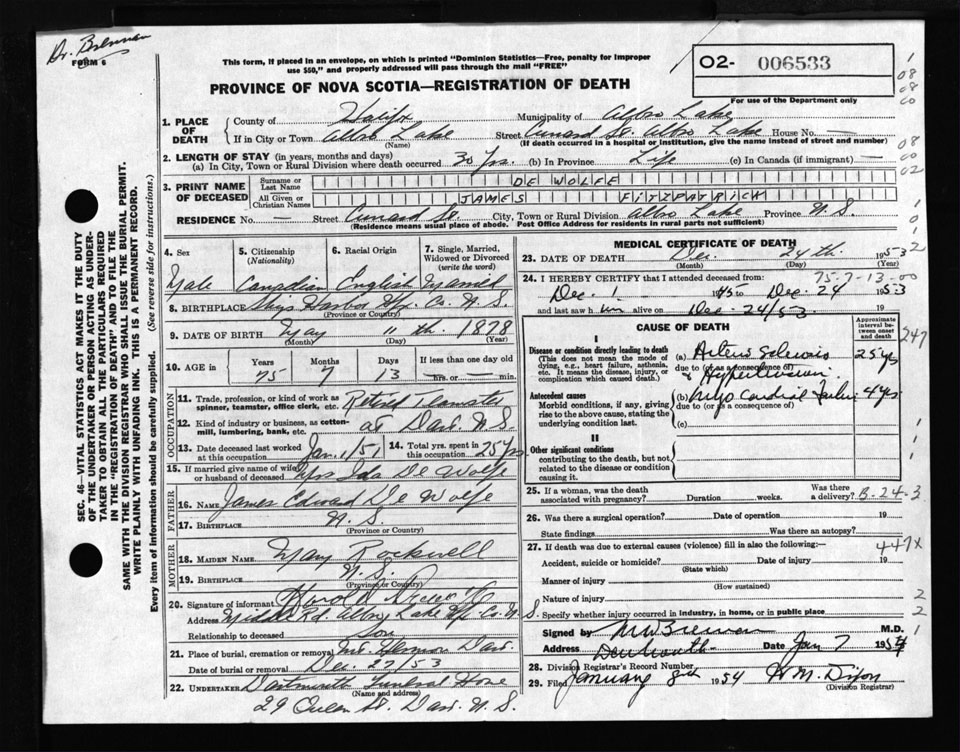 Dr. Brennan
FORM 6
This form, if placed in an envelope, on which is printed "Dominion Statistics—Free, penalty for improper
use $50," and properly addressed will pass through the mail "FREE"
O2- 006533
For use of the Department only
PROVINCE OF NOVA SCOTIA—REGISTRATION OF DEATH
1. PLACE OF DEATH
County of Halifx Municipality of Albro Lake
If in City or Town Albro Lake Street Cunard St. Albro Lake House No. —
(Name) (If death occurred in a hospital or institution, give the name instead of street and number)
2. LENGTH OF STAY (in years, months and days)
(a) In City, Town or Rural Division where death occurred 30 Yrs. (b) In Province Life (c) In Canada (if immigrant) —
3. PRINT NAME OF DECEASED
Surname or Last Name DE WOLFE
All Given or Christian Names JAMES FITZPATRICK
RESIDENCE No. — Street Cunard St. City, Town or Rural Division Albro Lake Province N.S.
(Residence means usual place of abode. Post Office Address for residents in rural parts not sufficient)
4. Sex Male
5. Citizenship (Nationality) Canadian
6. Racial Origin English
7. Single, Married, Widowed or Divorced (write the word) Married
8. BIRTHPLACE Ships Harbor Hfx. Co. N.S.
(Province or Country)
9. DATE OF BIRTH May 11th. 1878
(Month) (Day) (Year)
10. AGE in Years Months Days If less than one day old
75 7 13 hrs. or min.
OCCUPATION
11. Trade, profession, or kind of work as spinner, teamster, office clerk, etc. Retired Teamster
12. Kind of industry or business, as cotton-mill, lumbering, bank, etc. at Dart. N.S.
13. Date deceased last worked at this occupation Jan. 1/51
14. Total yrs. spent in this occupation 25 Yrs
15. If married give name of wife or husband of deceased Mrs Ida De Wolfe
FATHER
16. NAME James Edward De Wolfe
17. BIRTHPLACE N.S.
(Province or Country)
MOTHER
18. MAIDEN NAME May Rockwell
19. BIRTHPLACE N.S.
(Province or Country)
20. Signature of informant Harold
Address Middle Rd. Albro Lake Hfx. Co. N.S.
Relationship to deceased Son
21. Place of burial, cremation or removal Mt. Hermon Dart.
Date of burial or removal Dec. 27/53
22. UNDERTAKER Dartmouth Funeral Home
(Name and address)
29 Queen St. Dart. N.S.
MEDICAL CERTIFICATE OF DEATH
23. DATE OF DEATH Dec. 24th. 1953
(Month) (Day)
24. I HEREBY CERTIFY that I attended deceased from: 75-7-13-00
Dec. 1 1945 to Dec-24 1953
and last saw him alive on Dec-24/53 19
CAUSE OF DEATH
Approximate interval between onset and death
I
Disease or condition directly leading to death
(This does not mean the mode of dying, e.g., heart failure, asthenia, etc. It means the disease, injury, or complication which caused death.)
(a) Arterio Sclerosis 25 yrs
due to (or as a consequence of)
& Hypertension
Antecedent causes
Morbid conditions, if any, giving rise to the above cause, stating the underlying condition last.
(b) Myo Cardial Failure 4 yrs
due to (or as a consequence of)
(c)
II
Other significant conditions
contributing to the death, but not related to the disease or condition causing it.
25. If a woman, was the death associated with pregnancy? Duration weeks. Was there a delivery? B-24-3
26. Was there a surgical operation? Date of operation 19
State findings Was there an autopsy?
27. If death was due to external causes (violence) fill in also the following:— 447X
Accident, suicide or homicide? Date of injury 19
(State which)
Manner of injury
(How sustained)
Nature of injury
Specify whether injury occurred in industry, in home, or in public place
Signed by M. W. Brennan M.D.
Address Dartmouth Date Jan 7 1954
28. Division Registrar's Record Number
29. Filed January 8th 1954 W M. Dixon
(Division Registrar)
SEC. 46—VITAL STATISTICS ACT MAKES IT THE DUTY
OF THE UNDERTAKER OR PERSON ACTING AS UNDER-
TAKER TO OBTAIN ALL THE PARTICULARS REQUIRED
IN THE "REGISTRATION OF DEATH" AND TO FILE THE
SAME WITH THE DIVISION REGISTRAR WHO SHALL ISSUE THE BURIAL PERMIT.
WRITE PLAINLY WITH UNFADING INK. THIS IS A PERMANENT RECORD.
Every item of information should be carefully supplied. (See reverse side for instructions.)
1
08
08
00
08
00
02
1
0
1
2
247
1
1
1
2
2
1